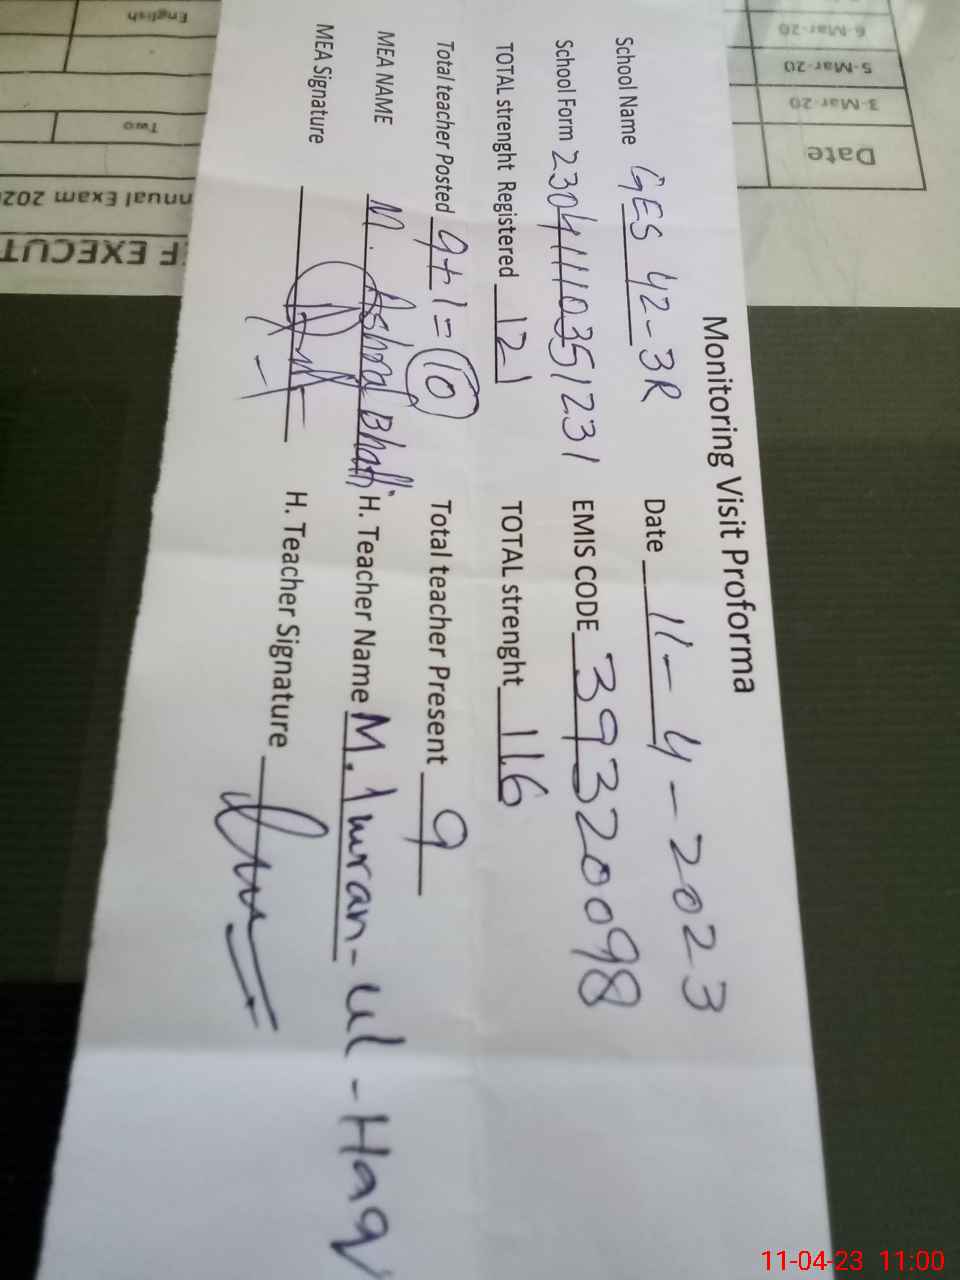 Monitoring Visit Proforma
School Name GES 42-3R Date 11-4-2023
School Form 23041110351231 EMIS CODE 39320098
TOTAL strenght Registered 121 TOTAL strenght 116
Total teacher Posted 9+1=10 Total teacher Present 9
MEA NAME M. Ashraf Bhatti H. Teacher Name M. Imran-ul-Haq
MEA Signature H. Teacher Signature
Date
3-Mar-20
5-Mar-20
6-Mar-20
English
Two
nnual Exam 202
F EXECUT
11-04-23 11:00